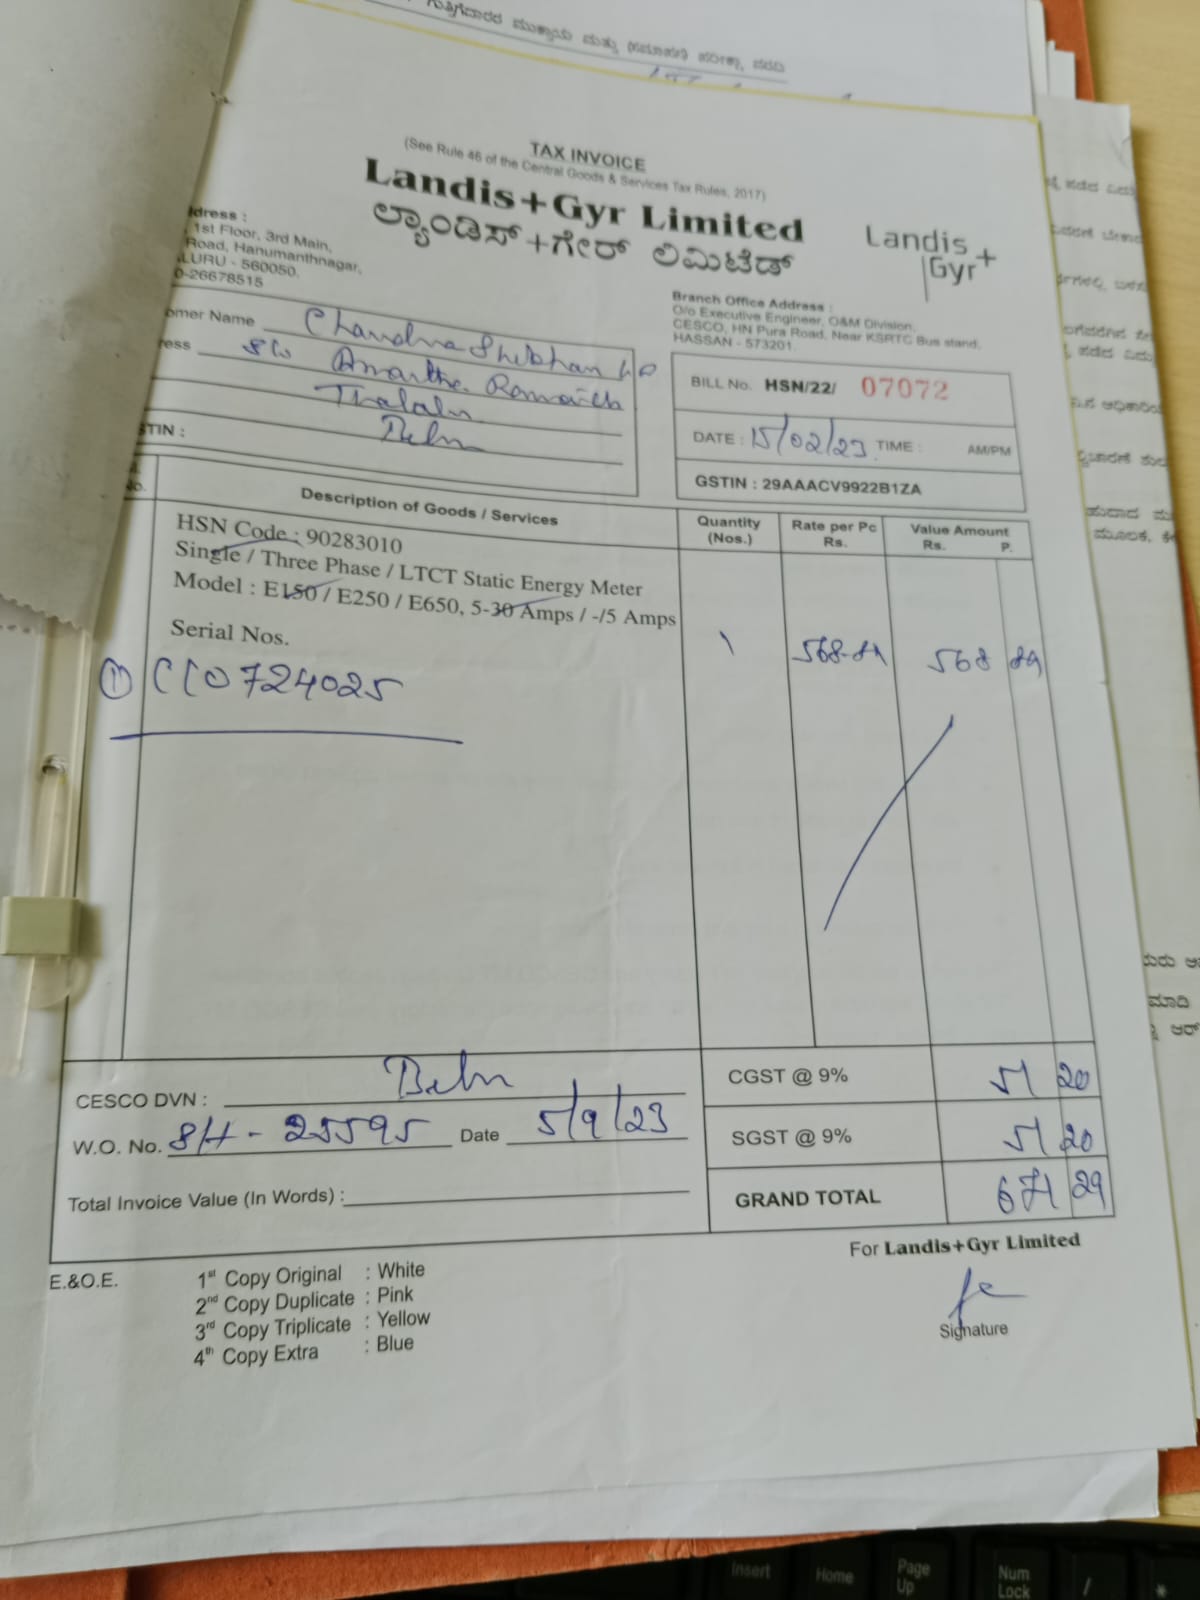 TAX INVOICE
(See Rule 46 of the Central Goods & Services Tax Rules, 2017)
Landis+Gyr Limited
ಲ್ಯಾಂಡಿಸ್+ಗೇರ್ ಲಿಮಿಟೆಡ್
Landis+
Gyr
dress :
1st Floor, 3rd Main,
Road, Hanumanthnagar,
LURU - 560050.
0-26678515
Branch Office Address :
O/o Executive Engineer, O&M Division,
CESCO, HN Pura Road, Near KSRTC Bus stand,
HASSAN - 573201.
omer Name
ress
Thalalu
Belur
STIN :
BILL No. HSN/22/ 07072
DATE : 15/02/23 TIME : AM/PM
GSTIN : 29AAACV9922B1ZA
No.
Description of Goods / Services
Quantity (Nos.)
Rate per Pc Rs.
Value Amount Rs. P.
HSN Code : 90283010
Single / Three Phase / LTCT Static Energy Meter
Model : E150 / E250 / E650, 5-30 Amps / -/5 Amps
Serial Nos.
1 568-89 568 89
① CC0724025
CESCO DVN : Belur
W.O. No. SH-25595 Date 5/9/23
Total Invoice Value (In Words) :
CGST @ 9% 51 20
SGST @ 9% 51 20
GRAND TOTAL 671 29
For Landis+Gyr Limited
Signature
E.&O.E.
1st Copy Original : White
2nd Copy Duplicate : Pink
3rd Copy Triplicate : Yellow
4th Copy Extra : Blue
Insert
Home
Page Up
Num Lock
/
*